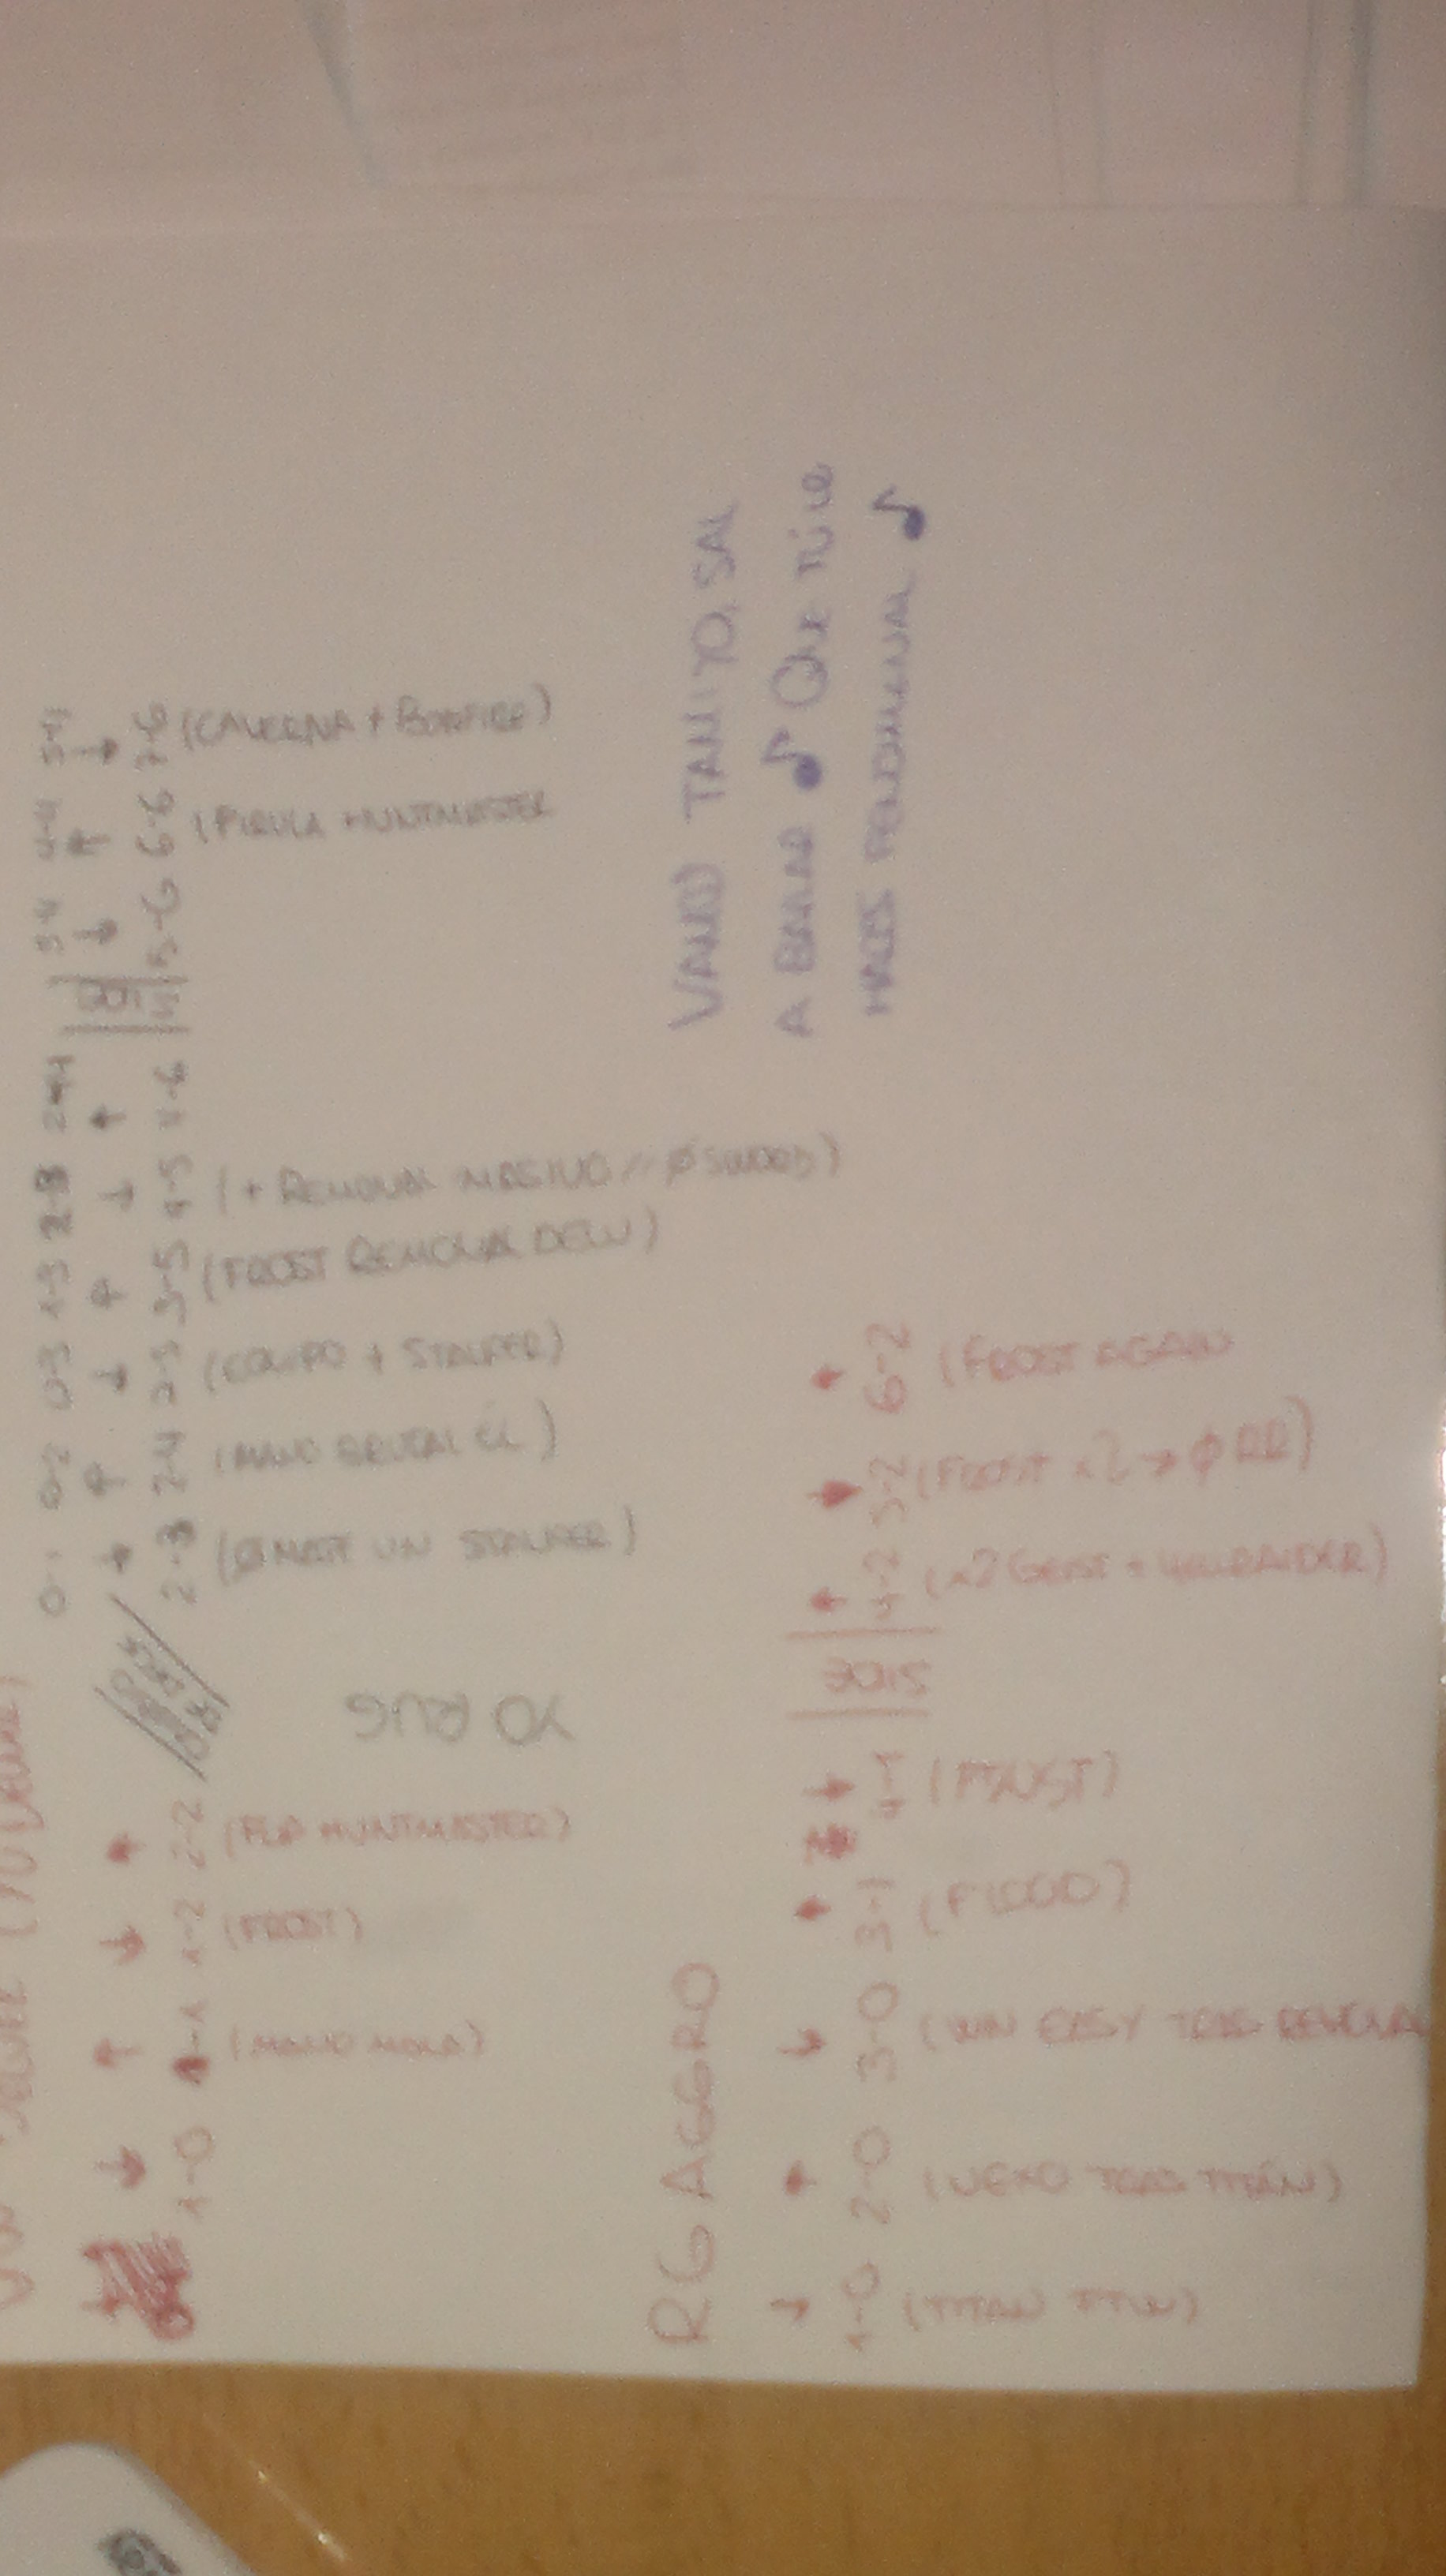 1-0
1-1 (MANO MALA)
1-2 (FROST)
2-2 (FLIP HUNTMASTER)
YO RUG
0-1
2-3 (Ø MATÉ UN STALKER)
0-2
2-4 (MANO BRUTAL ÉL)
0-3
2-5 (EQUIPO + STALKER)
1-3
3-5 (FROST REMOVAL DEW)
2-3
4-5 (+ REMOVAL MASIVO // Ø SWORD)
2-4
4-6
3-4
5-6
4-4
6-6 (PIRULA HUNTMASTER
5-4
7-6 (CAVERNA + BONFIRE)
RG AGGRO
1-0 (TITAN TTW)
2-0 (VEXO TRAS TITÁN)
3-0 (WIN EASY TRAS REMOVAL
3-1 (FLOOD)
4-1
SIDE
4-2 (x2 GEIST +
5-2 (FROST x2 → Ø RR)
6-2 (FROST AGAIN
VAMO TAMIYO, SAL
A BAILAR ♪ Que tú lo
HACES FENOMENAL ♪